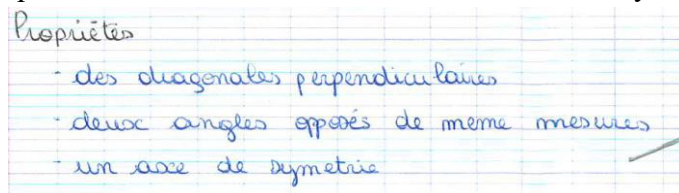 Propriétés
- des diagonales perpendiculaires
- deux angles opposés de meme mesures
- un axe de symetrie